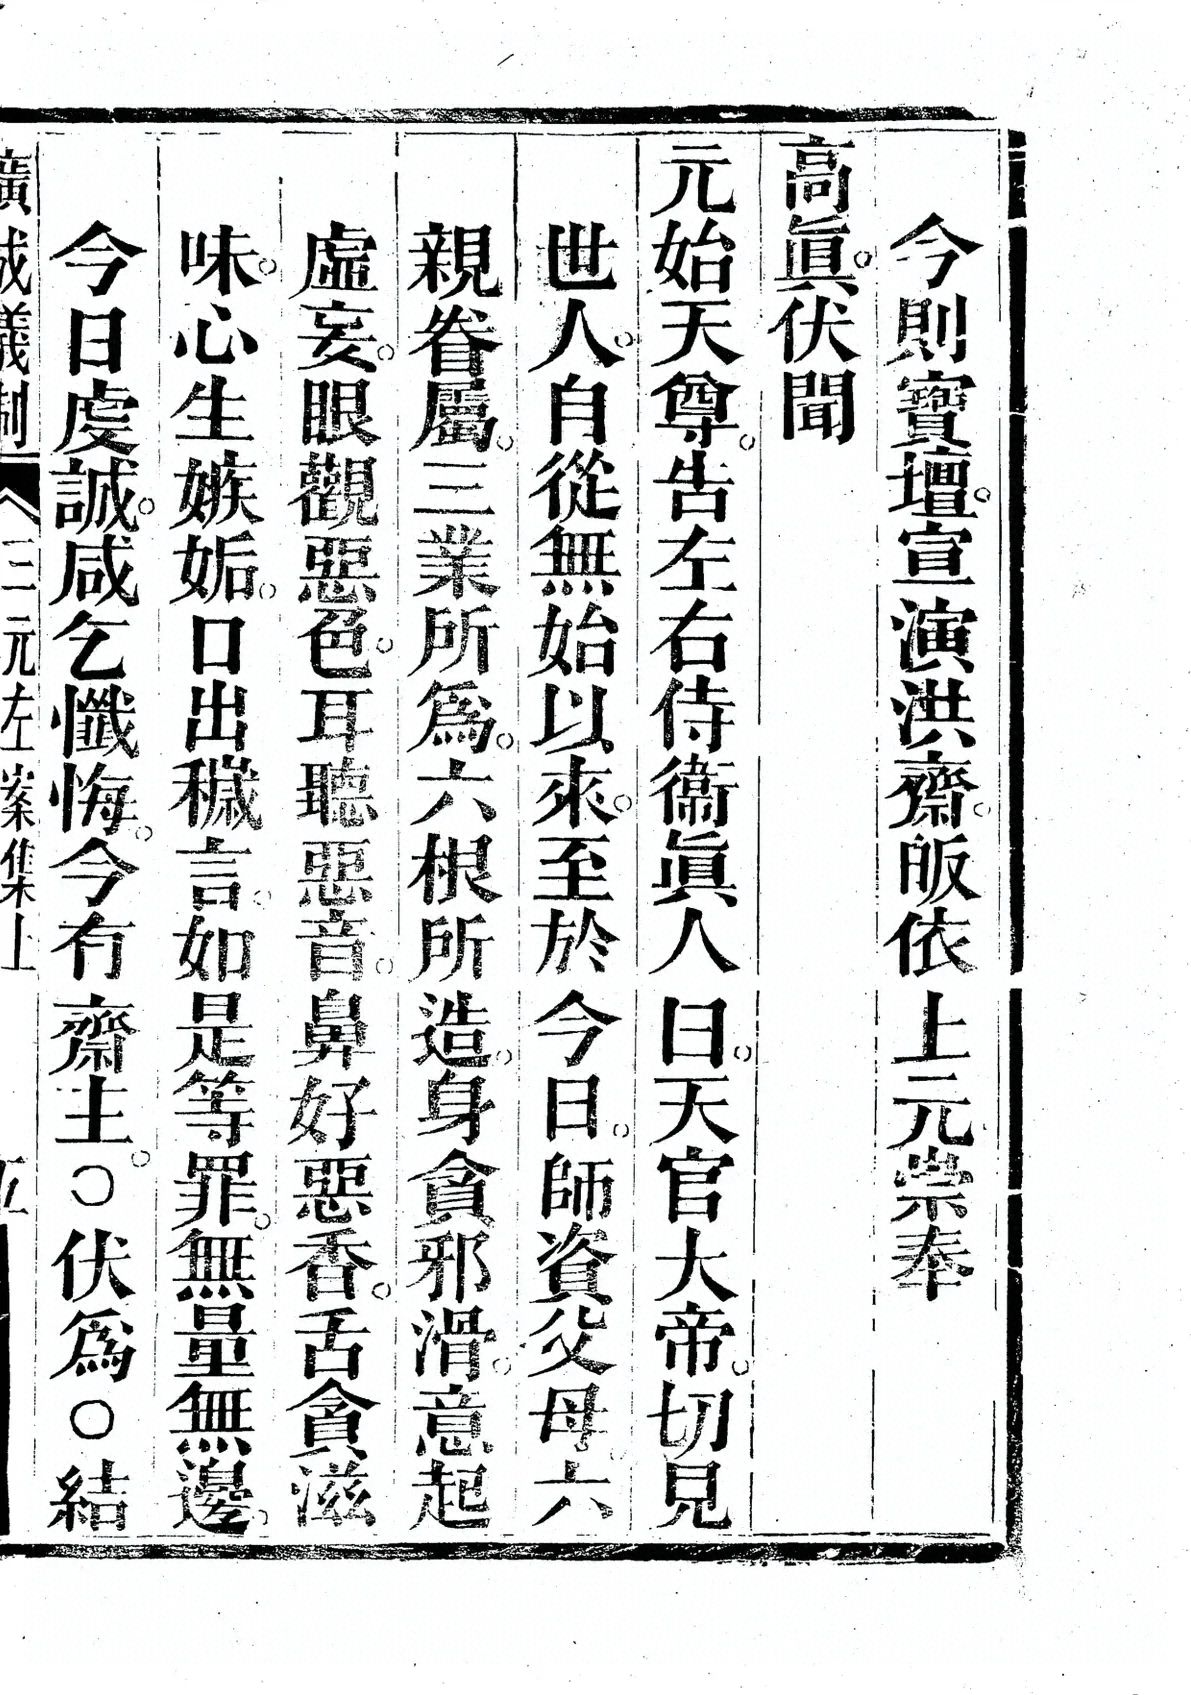 今則寶壇。宣演洪齋。皈依上元崇奉
高眞。伏聞
元始天尊。告左右侍衞眞人曰。天官大帝。切見
世人。自從無始以來。至於今日。師資父母。六
親眷屬。三業所爲。六根所造。身貪邪滑。意起
虛妄。眼觀惡色。耳聽惡音。鼻好惡香。舌貪滋
味。心生嫉姤。口出穢言。如是等罪。無量無邊。
今日虔誠。咸乞懺悔。今有齋主。○伏爲○結
廣成儀制 三元左案集上 五